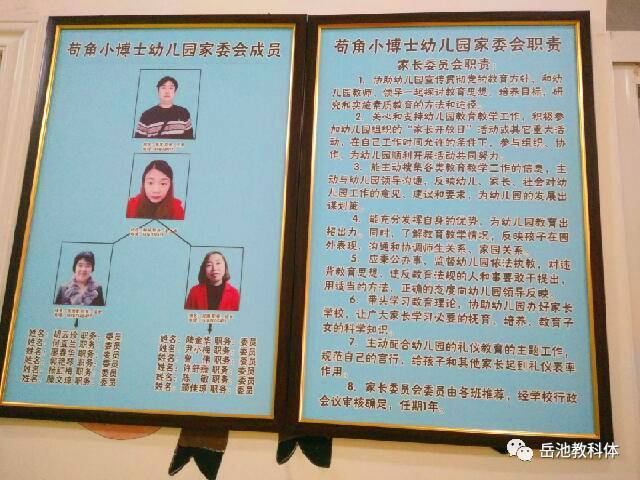 苟角小博士幼儿园家委会成员
姓名: 职务: 委员
姓名: 职务: 委员
姓名: 职务: 委员
姓名: 职务: 委员
姓名: 职务: 委员
姓名: 职务: 委员
姓名: 陆金华 职务: 委员
姓名: 尹小梅 职务: 委员
姓名: 伟 职务: 委员
姓名: 职务: 委员
姓名: 陈敏 职务: 委员
姓名: 职务: 委员
苟角小博士幼儿园家委会职责
家长委员会职责:
1、协助幼儿园宣传贯彻党的教育方针,和幼
儿园教师、领导一起探讨教育思想、培养目标、研
究和实施素质教育的方法和途径。
2、关心和支持幼儿园教育教学工作,积极参
加幼儿园组织的“家长开放日”活动或其它重大活
动,在自己工作时间允许的条件下,参与组织、协
作,为幼儿园顺利开展活动共同努力。
3、能主动搜集各类教育教学工作的信息,主
动与幼儿园领导沟通,反映幼儿、家长、社会对幼
儿园工作的意见、建议和要求,为幼儿园的发展出
谋划策。
4、能充分发挥自身的优势,为幼儿园教育出
招出力。同时,了解教育教学情况,反映孩子在园
外表现,沟通和协调师生关系、家园关系。
5、应秉公办事,监督幼儿园依法执教,对违
背教育思想、违反教育法规的人和事要敢于提出,
用适当的方法,正确的态度向幼儿园领导反映。
6、带头学习教育理论,协助幼儿园办好家长
学校,让广大家长学习必要的抚育、培养、教育子
女的科学知识。
7、主动配合幼儿园的礼仪教育的主题工作,
规范自己的言行,给孩子和其他家长起到礼仪表率
作用。
8、家长委员会委员由各班推荐,经学校行政
会议审核确定,任期1年。
岳池教科体